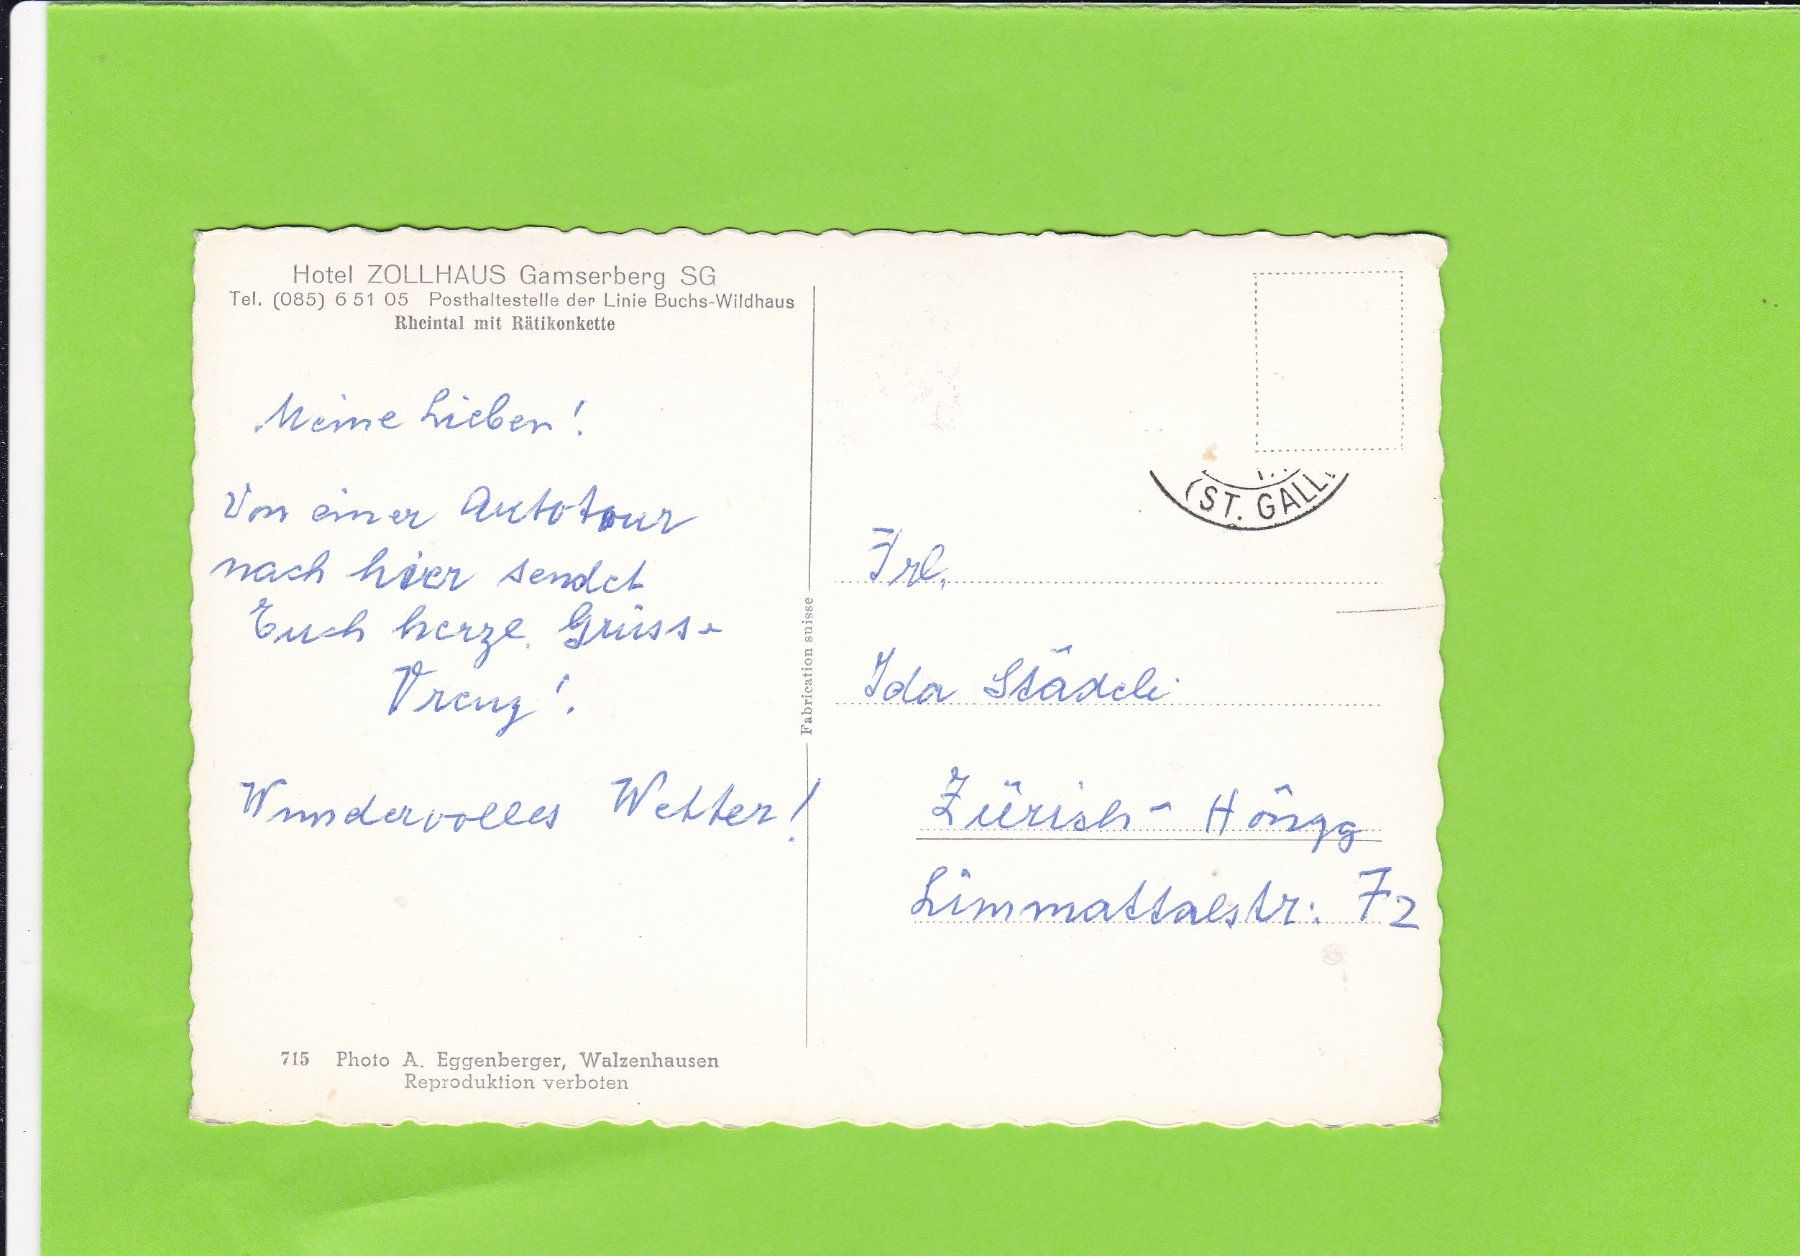 Hotel ZOLLHAUS Gamserberg SG
Tel. (085) 6 51 05 Posthaltestelle der Linie Buchs-Wildhaus
Rheintal mit Rätikonkette
Meine Lieben!
Von einer Autotour
nach hier sendet
Euch herzl. Grüsse
Vreny!
Wundervolles Wetter!
715 Photo A. Eggenberger, Walzenhausen
Reproduktion verboten
Fabrication suisse
(ST. GALL
Frl.
Ida
Zürich - Höngg
Limmattalstr. 72